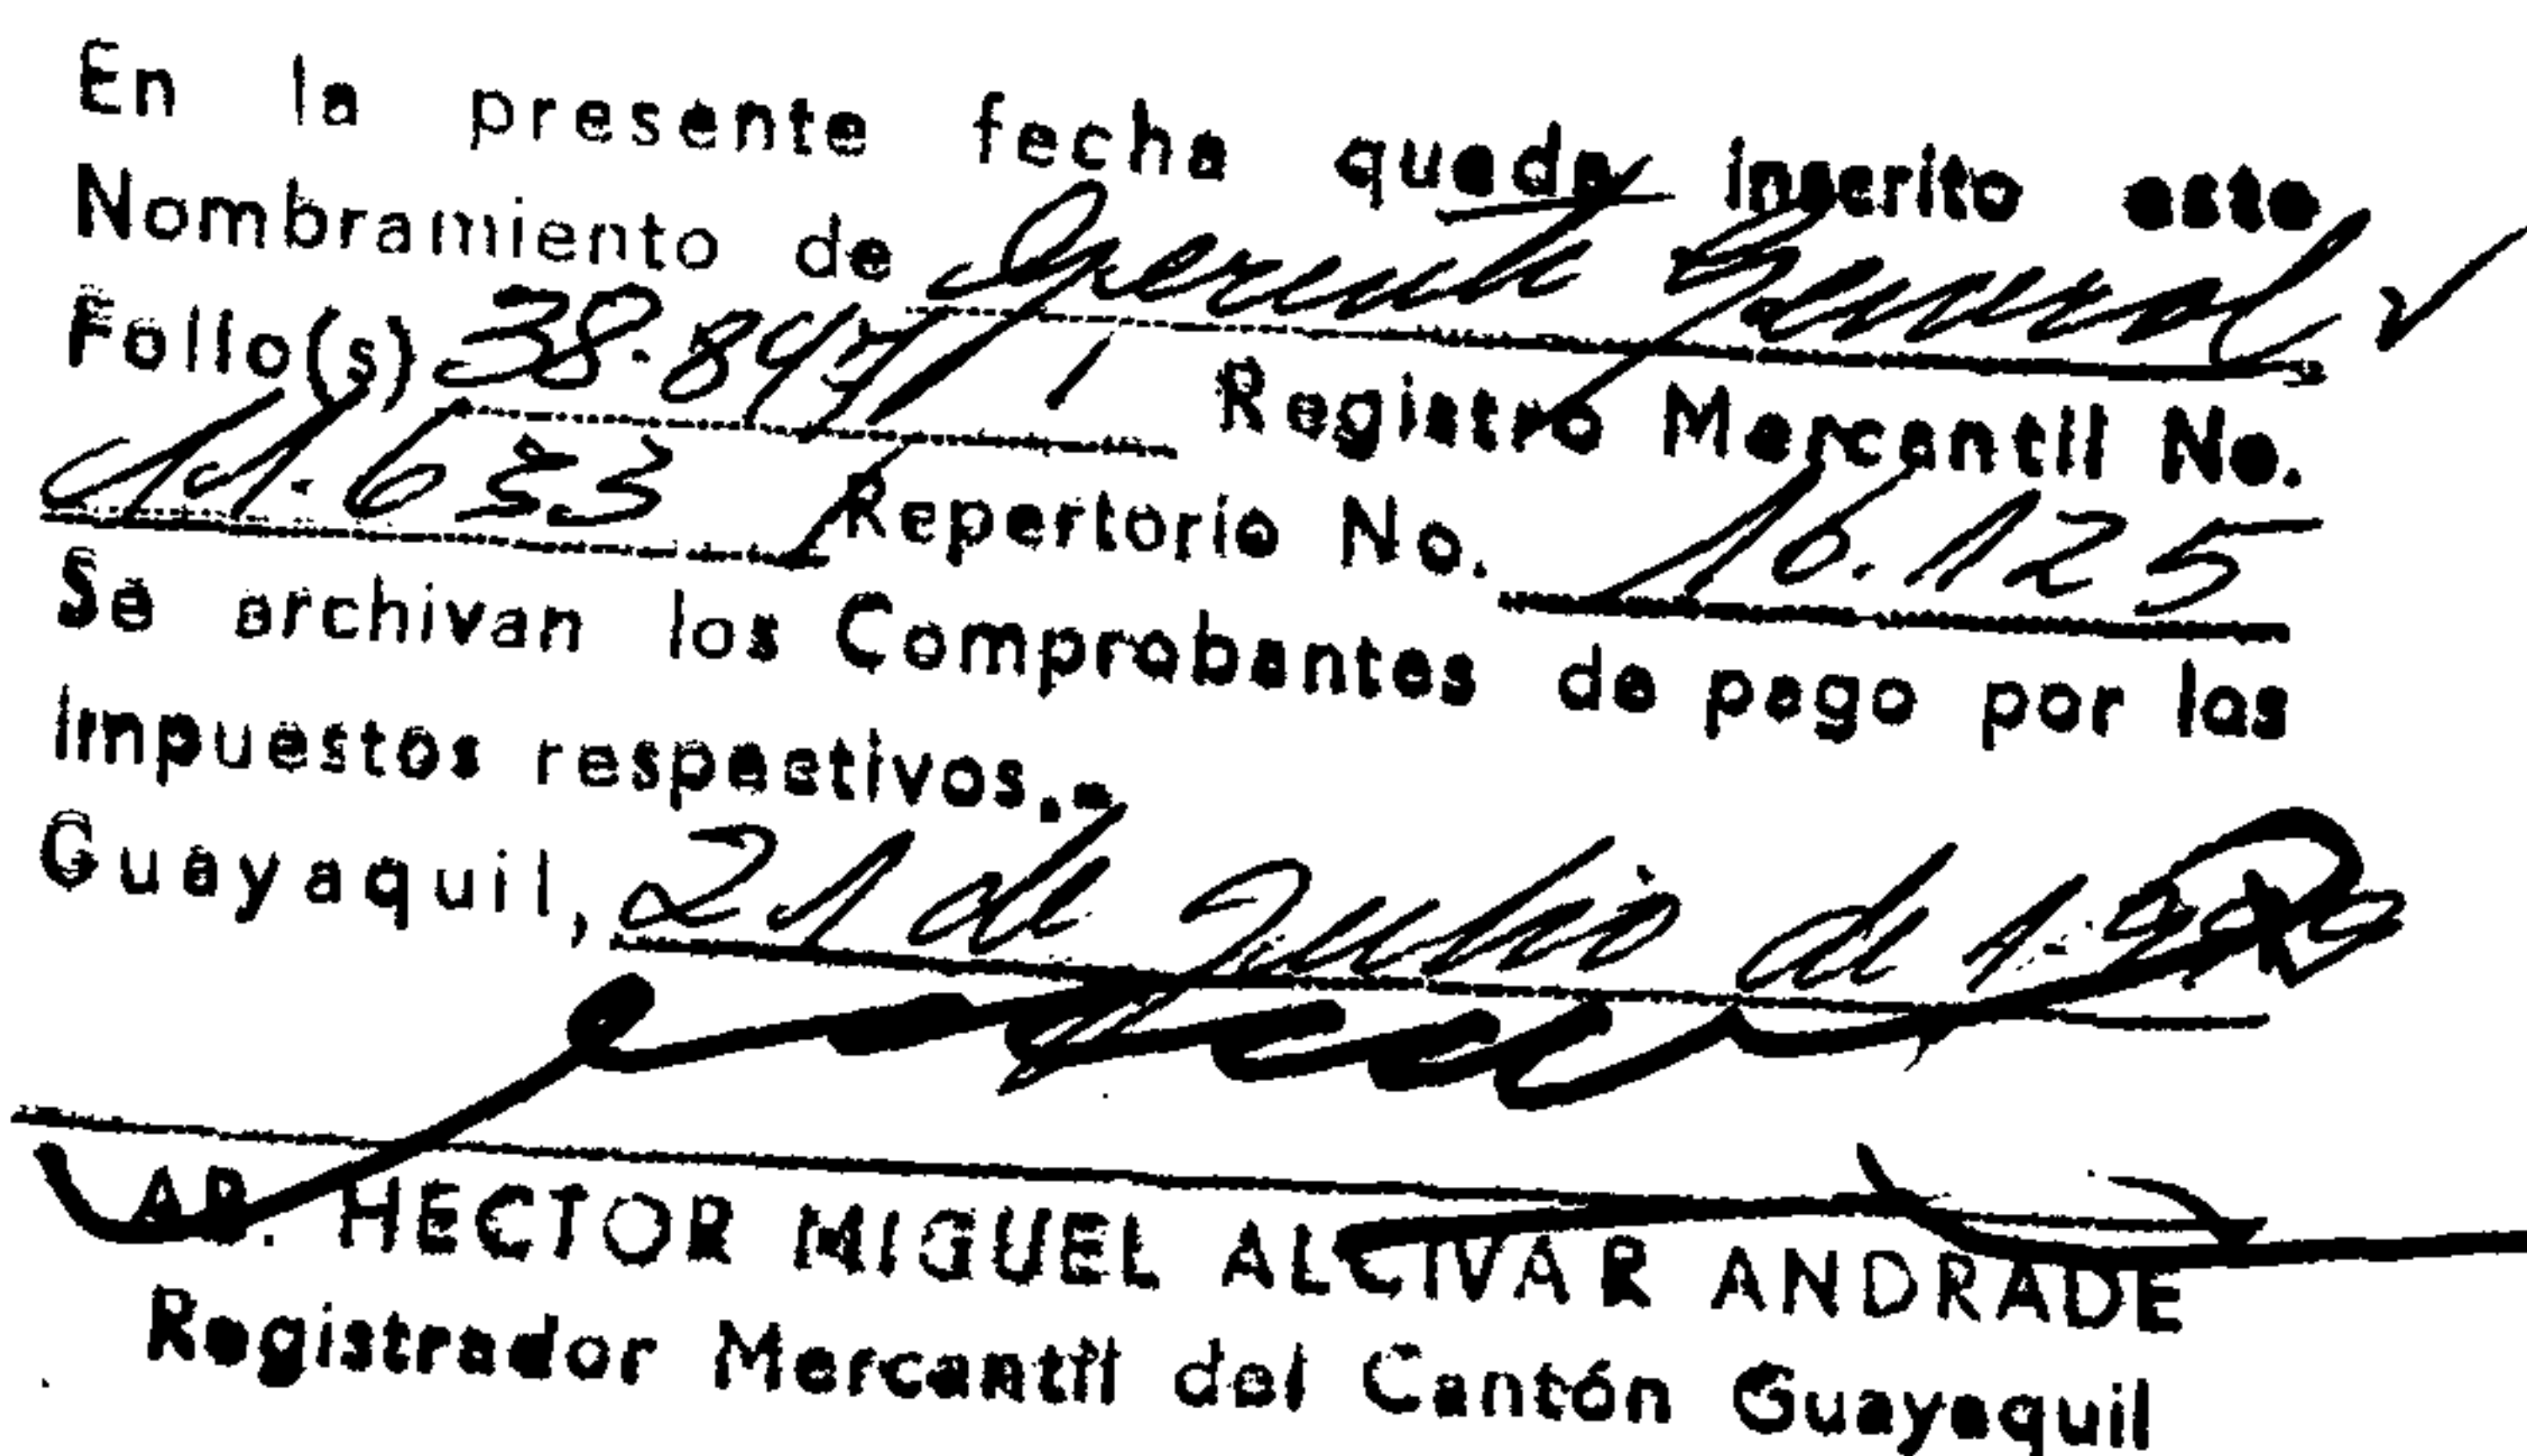 En la presente fecha queda inscrito este
Nombramiento de Gerente General
Folio(s) 38.847 Registro Mercantil No.
11.633 Repertorio No. 16.125
Se archivan los Comprobantes de pago por los
Impuestos respectivos.-
Guayaquil, 21 de Julio de
AB. HECTOR MIGUEL ALCIVAR ANDRADE
Registrador Mercantil del Cantón Guayaquil